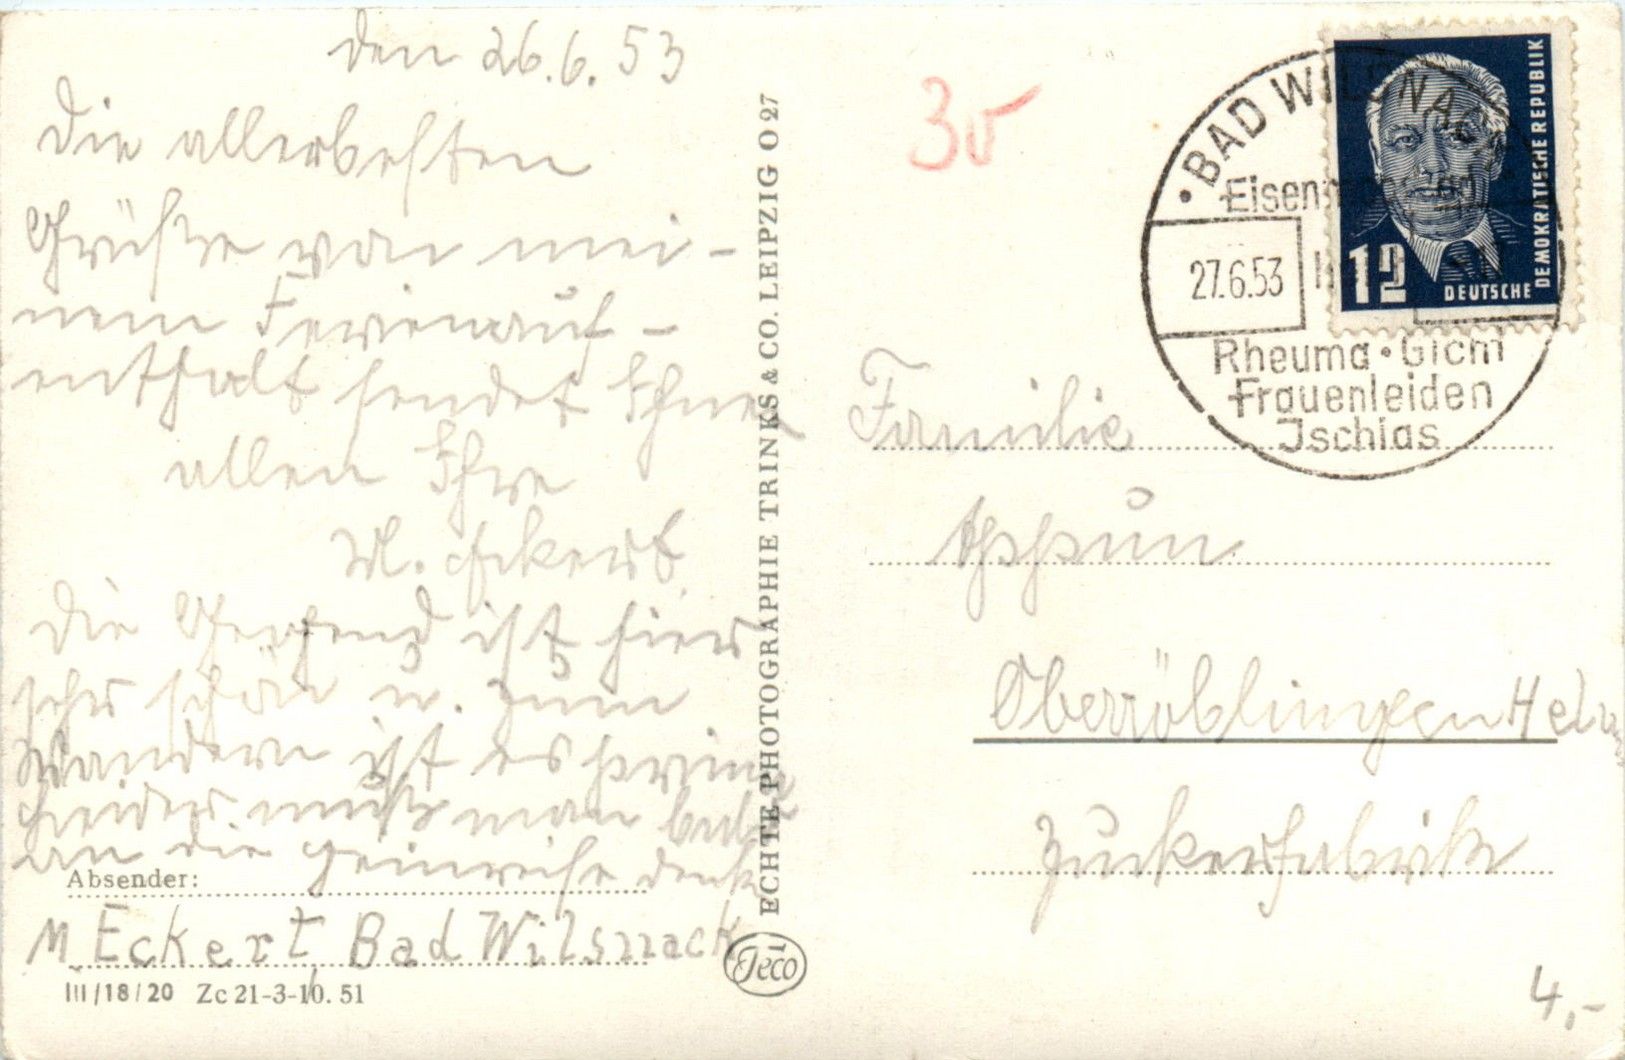 den 26.6.53
die allerbesten
Grüße von mei-
nem Ferienauf-
enthalt sendet Ihnen
allen Ihre
M. Eckert
die Gegend ist hier
sehr schön u. zum
Wandern ist es prima
leider muß man bald
an die Heimreise denken
Absender:
M Eckert Bad Wilsnack
III/18/20 Zc 21-3-10. 51
ECHTE PHOTOGRAPHIE TRINKS & CO. LEIPZIG O 27
Jeco
30
BAD WILSNACK
27.6.53
Rheuma · Gicht
Frauenleiden
Ischias
12
DEUTSCHE
DEMOKRATISCHE REPUBLIK
Familie
Appun
Oberröblingen Helme
Zuckerfabrik
4,-